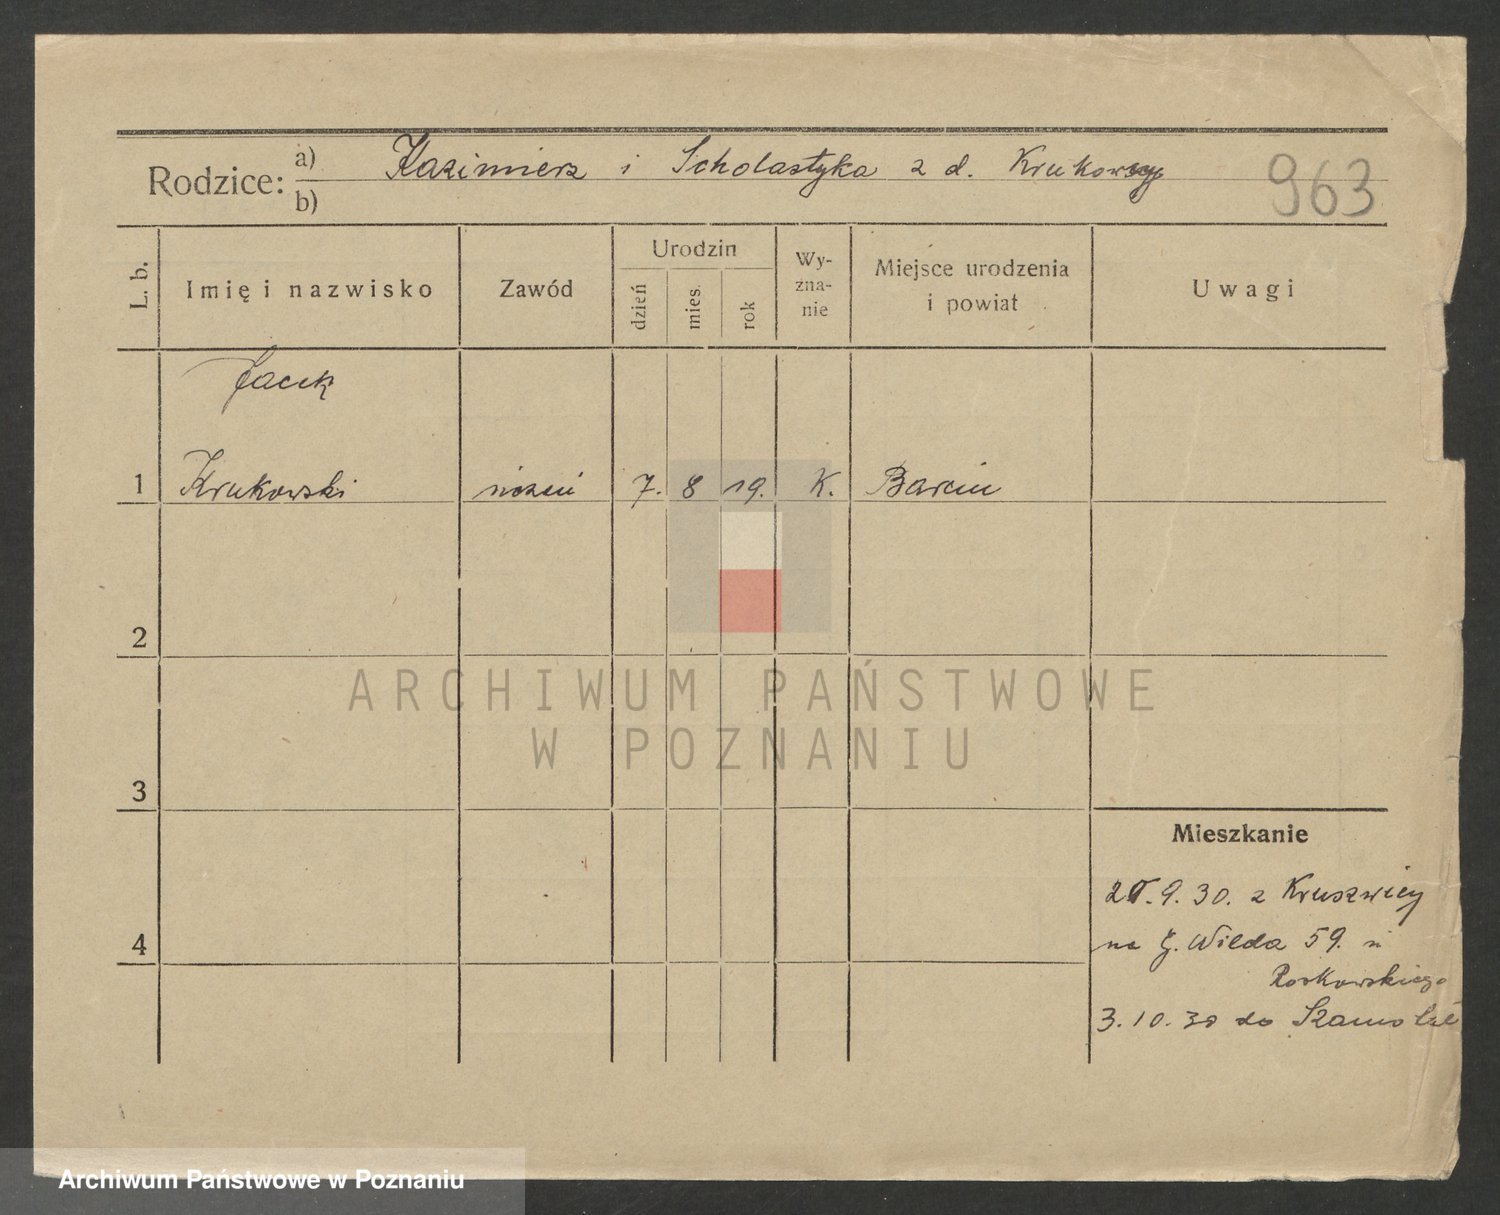 Rodzice: a) Kazimierz i Scholastyka z d. Krukowscy 963
b)
L. b. Imię i nazwisko Zawód Urodzin dzień mies. rok Wy-zna-nie Miejsce urodzenia i powiat Uwagi
Jacek
1 Krukowski uczeń 7. 8 19. K. Barcin
2
ARCHIWUM PAŃSTWOWE
W POZNANIU
3
Mieszkanie
9. 30. z Kruszwicy
4
na G. Wilda 59. u
Roskowskiego
3. 10. 30 do Szamotuł
Archiwum Państwowe w Poznaniu